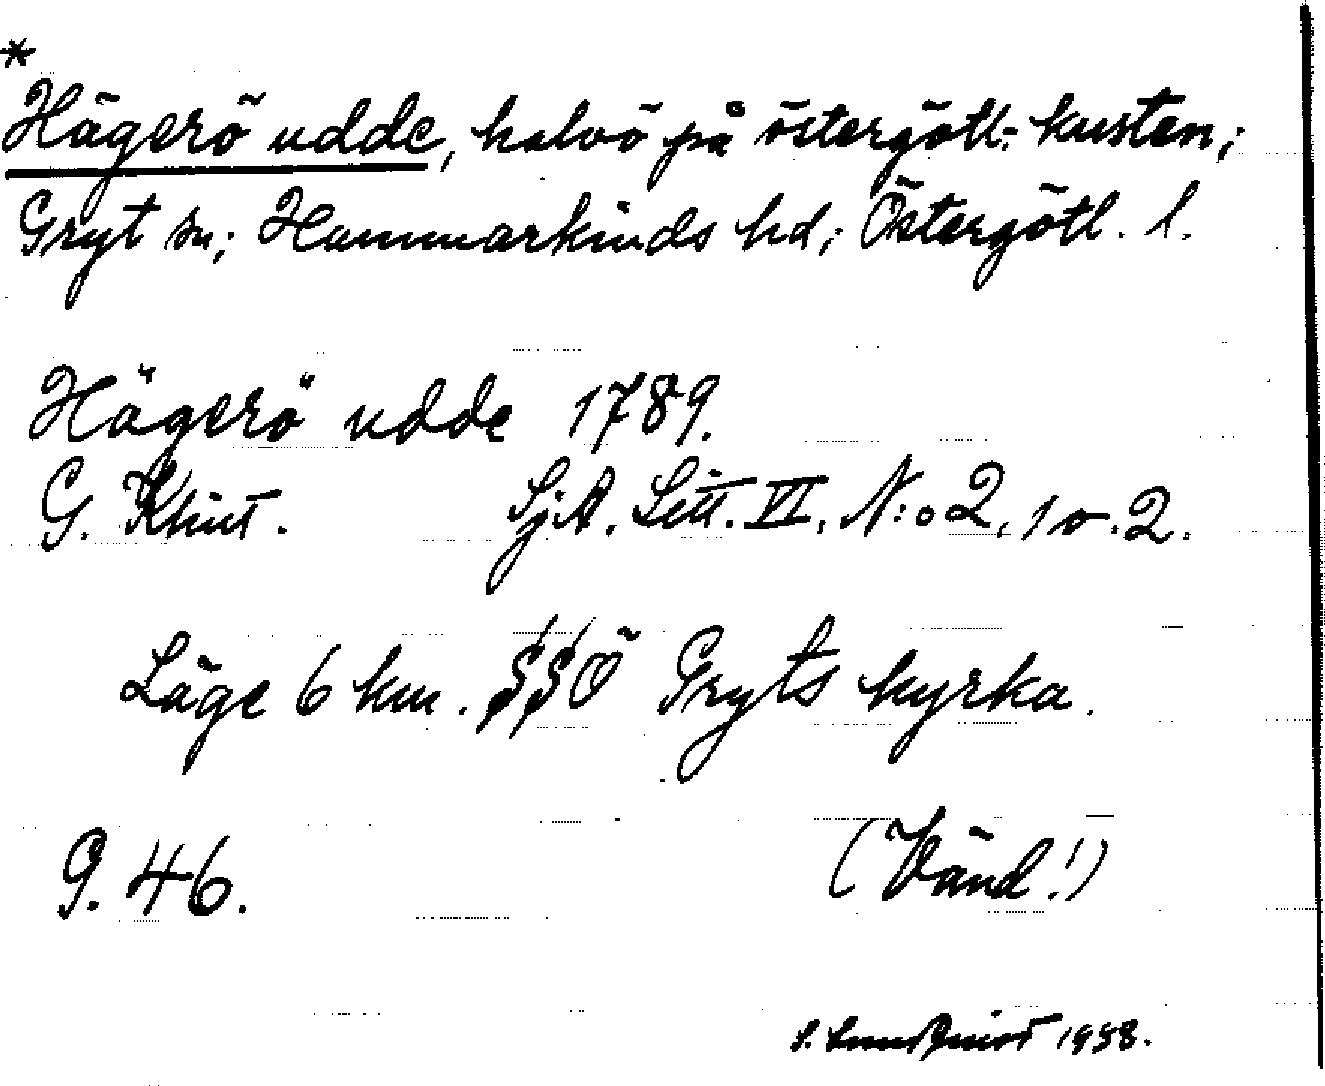 *
Hägerö udde, halvö på östergötl. kusten;
Gryt sn; Hammarkinds hd; Östergötl. l.
Hägerö udde 1789.
G. Klint. SjA. Litt. VI, N:o 2, 1 o. 2.
Läge 6 km. SSÖ Gryts kyrka.
G. 46. (Vänd!)
S. Lundquist 1938.